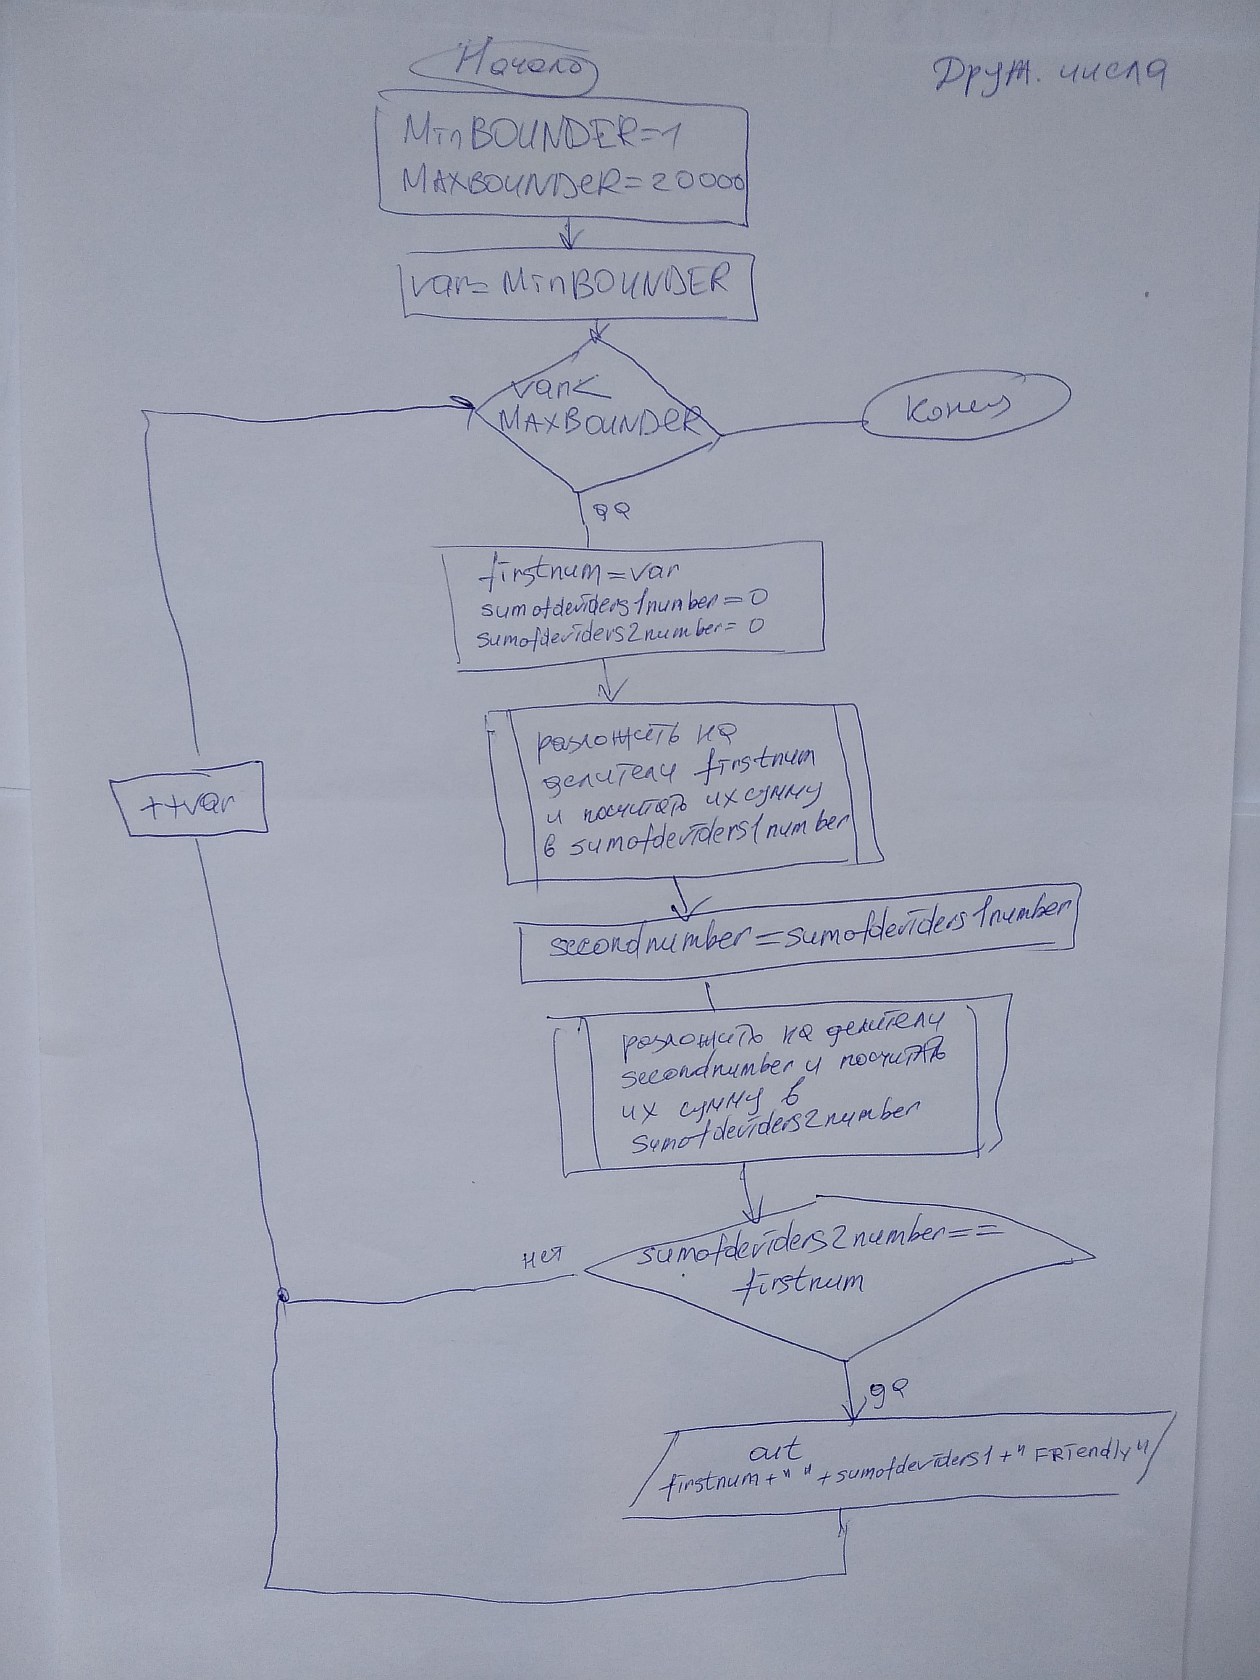 Начало
Друж. числа
MinBOUNDER=1
MAXBOUNDER=20000
var=MinBOUNDER
var<
MAXBOUNDER
Конец
да
firstnum=var
sumofdeviders1number=0
sumofdeviders2number=0
разложить на
делители firstnum
и посчитать их сумму
в sumofdeviders1number
++var
secondnumber=sumofdeviders1number
разложить на делители
secondnumber и посчитать
их сумму в
sumofdeviders2number
нет
sumofdeviders2number==
firstnum
да
out
firstnum+" "+sumofdeviders1+" FRIendly"